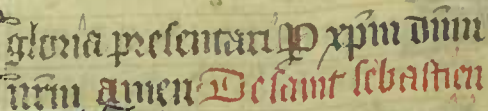 gloria presentari P xpm dnm
nrm amen De saint sebastien